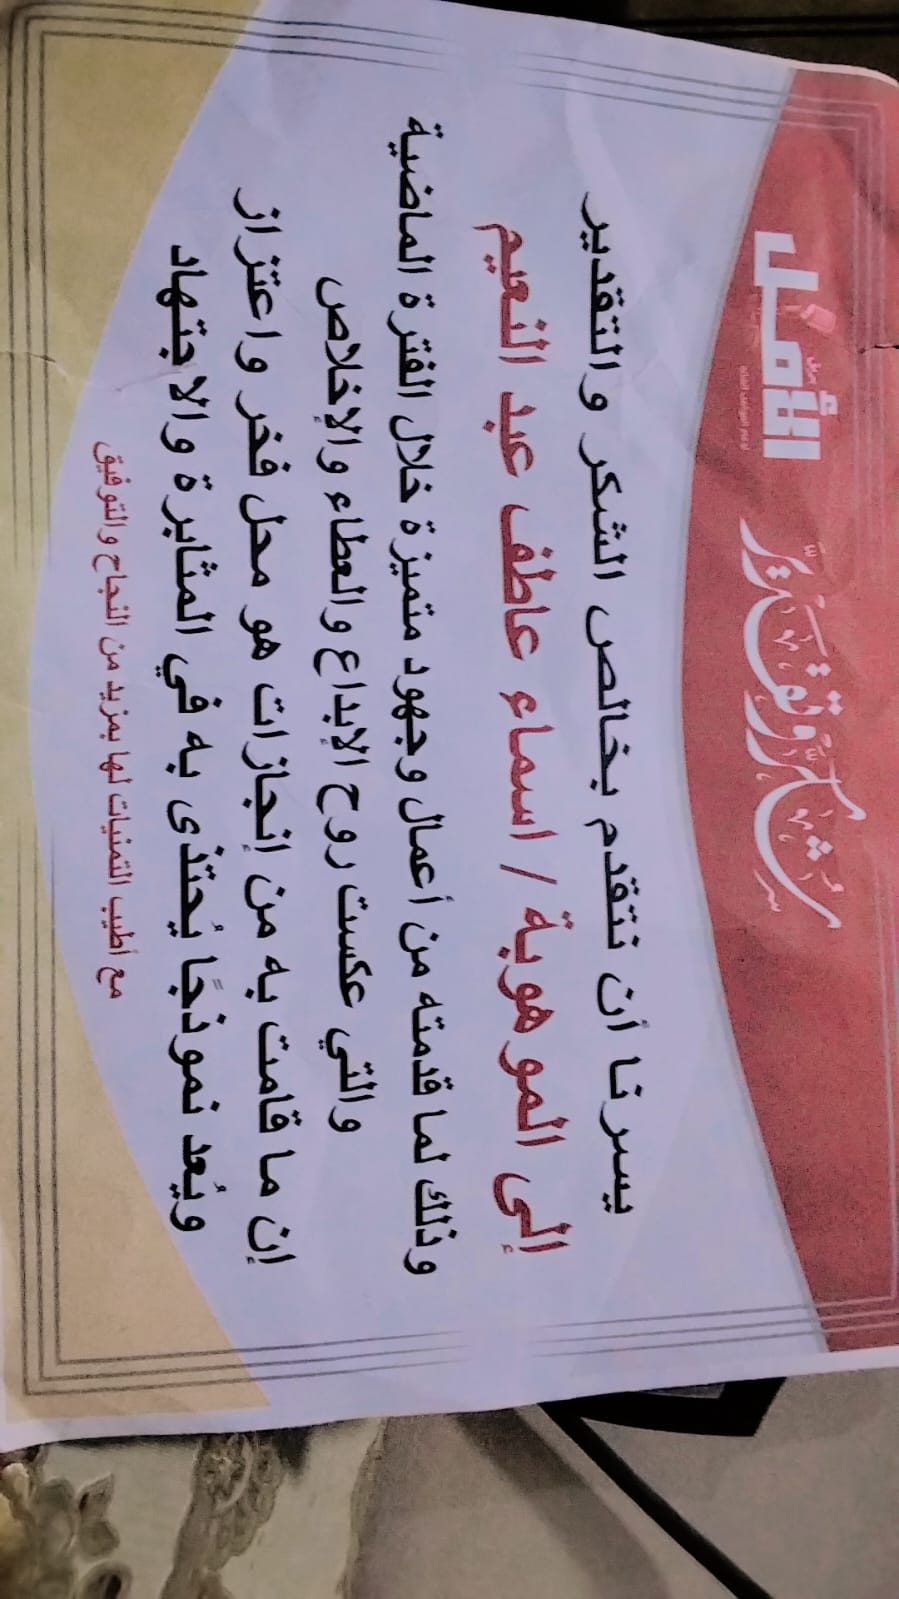 شكر وتقدير
فريق
الأمل
يسرنا أن نتقدم بخالص الشكر والتقدير
إلى الموهوبة / اسماء عاطف عبد النعيم
وذلك لما قدمته من أعمال وجهود متميزة خلال الفترة الماضية
والتي عكست روح الإبداع والعطاء والإخلاص
إن ما قامت به من إنجازات هو محل فخر واعتزاز
ويُعد نموذجًا يُحتذى به في المثابرة والاجتهاد
مع أطيب التمنيات لها بمزيد من النجاح والتوفيق